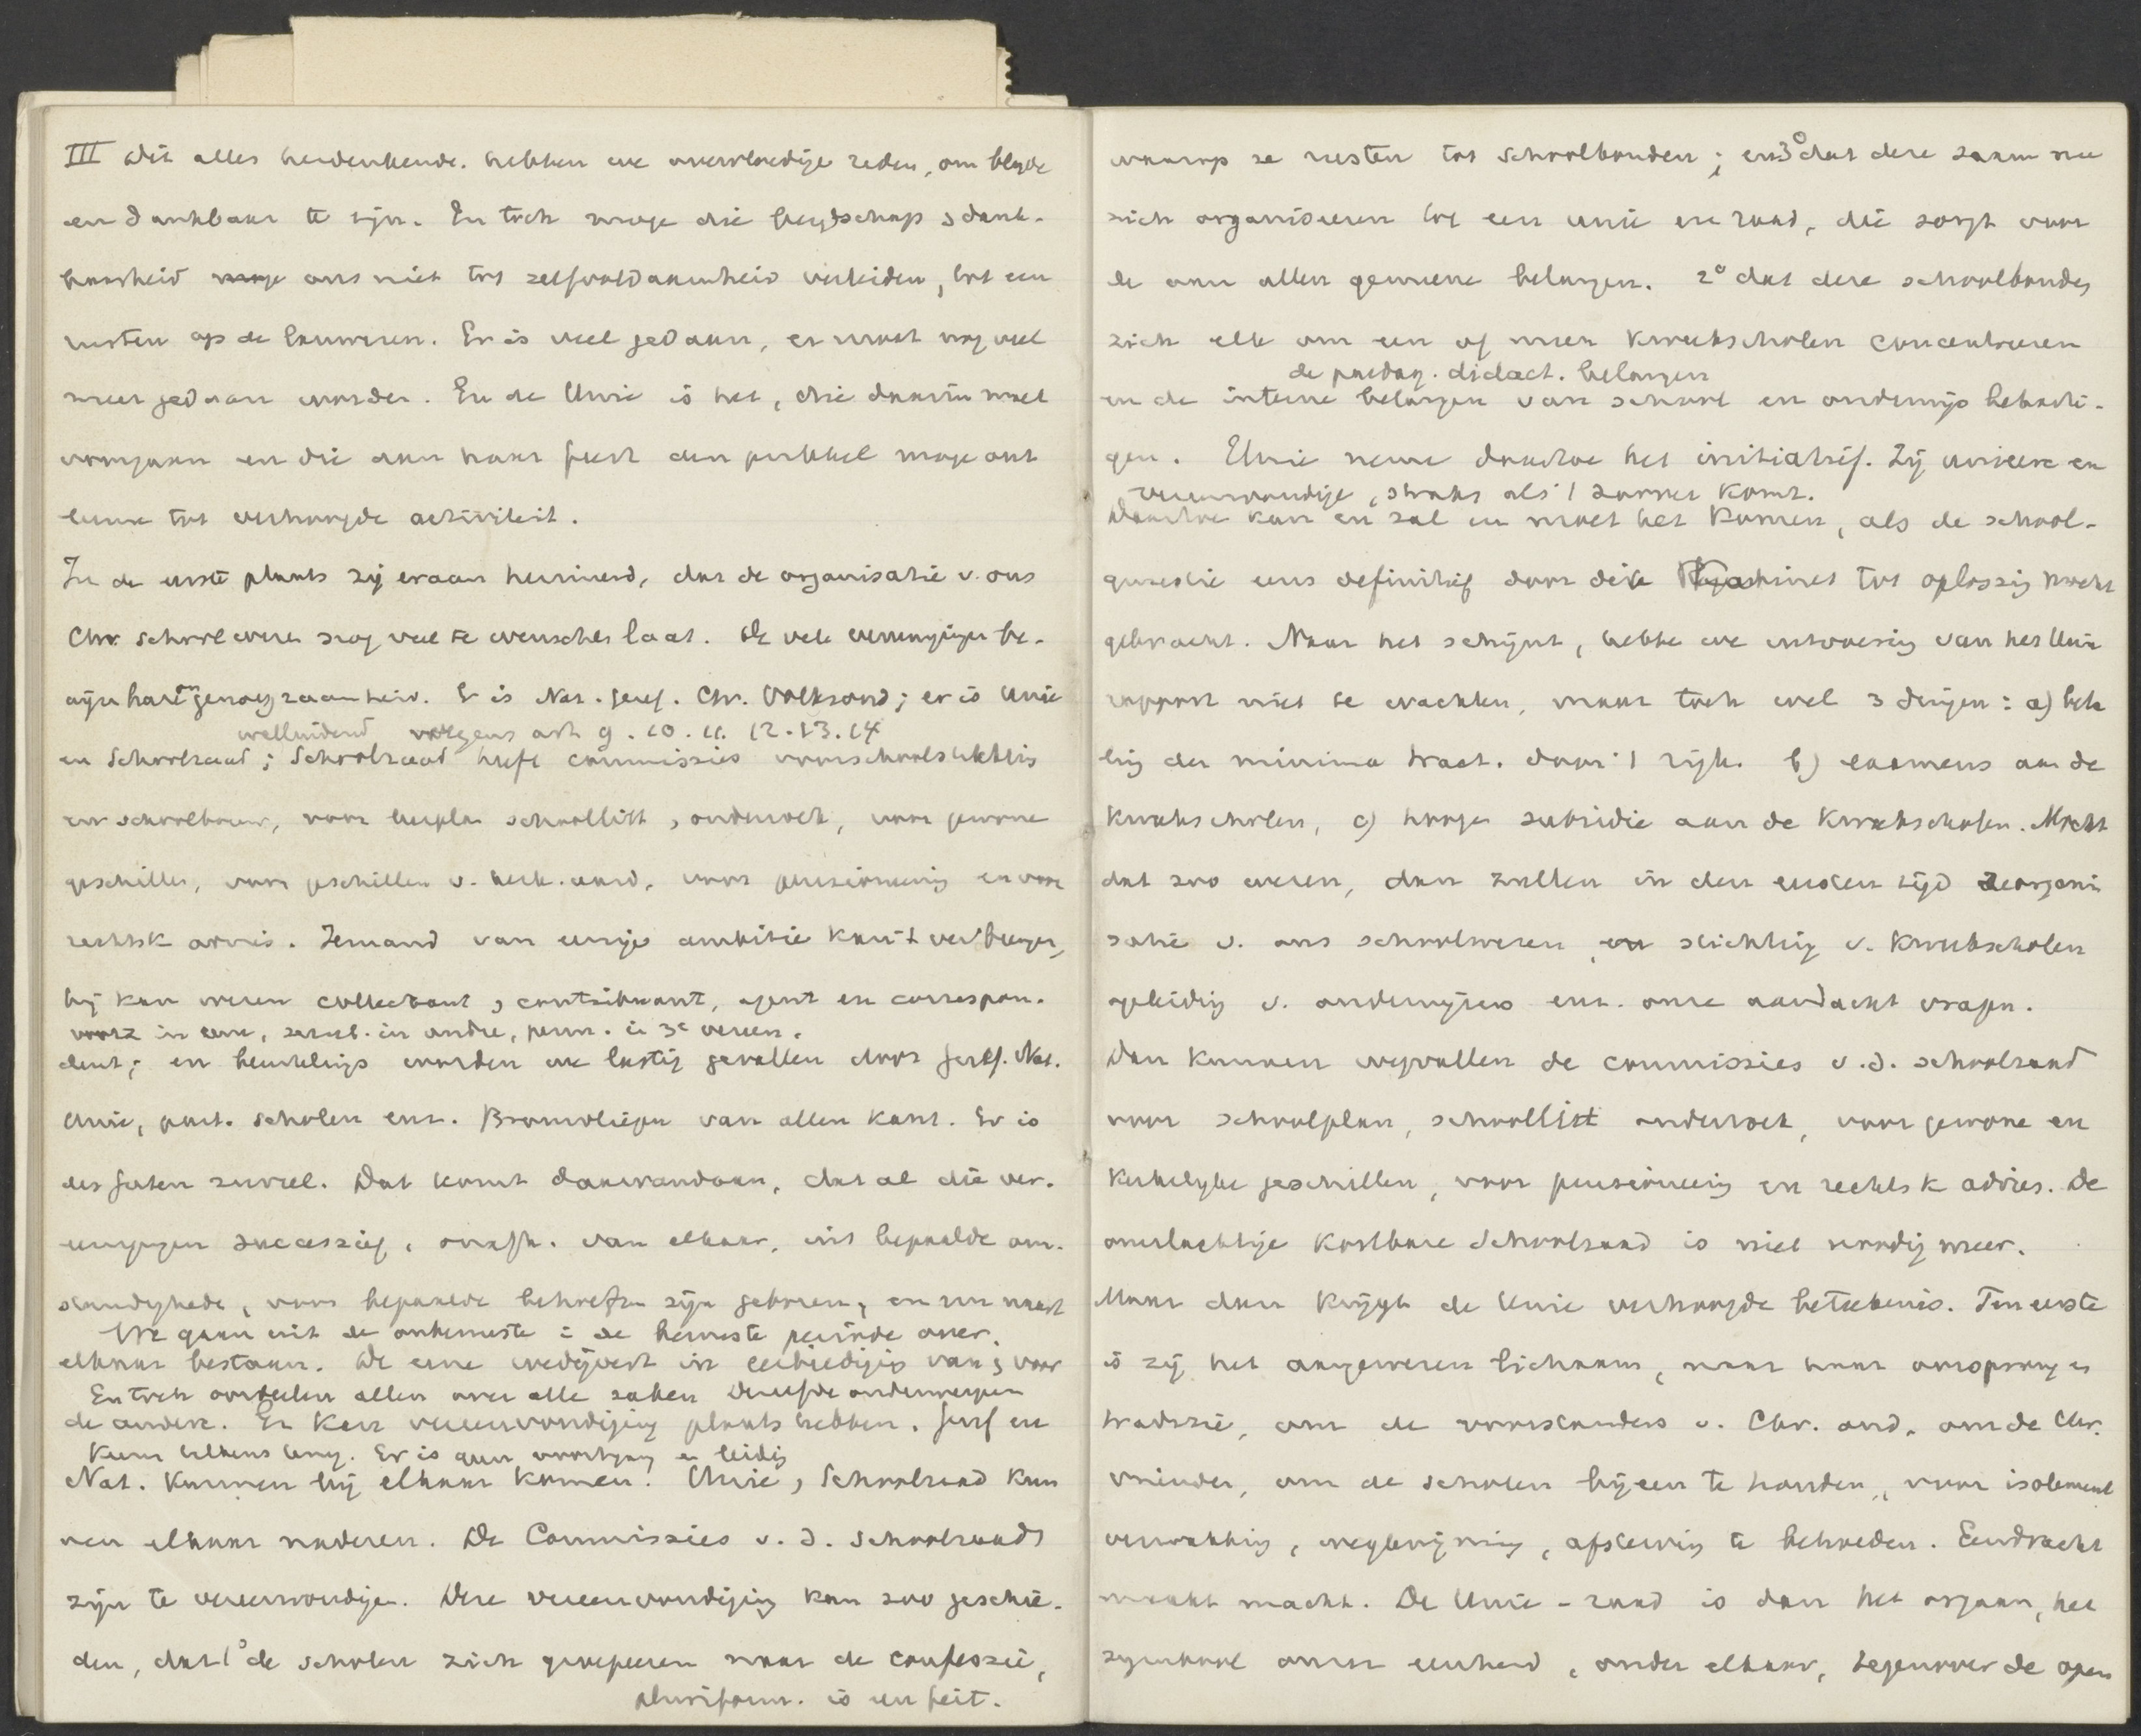 III Dit alles herdenkende. hebben we overvloedige reden, om blyde
en dankbaar te zijn. En toch moge die blydschap & dank-
baarheid moge ons niet tot zelfvoldaanheid verleiden, tot een
rusten op de lauweren. Er is veel gedaan, er moet nog veel
meer gedaan worden. En de Unie is het, die daarin moet
voorgaan en die aan haar feest den prikkel moge ont
leene tot verhoogde activiteit.
In de eerste plaats zij eraan herinnerd, dat de organisatie v. ons
Chr. schoolwezen nog veel te wenschen laat. De vele vereenigingen be-
wijzen genoegzaamheid. Er is Nat. Geref. Chr. Volksond; er is Unie
welluidend volgens art 9. 10. 11. 12. 13. 14
en Schoolraad; Schoolraad heeft commissies voor schoolstatistiek
en schoolbouw, voor leerplan schoollitt, onderzoek, voor gewone
geschillen, voor geschillen v. kerk. aard, voor pensioneering en voor
rechtsk advies. Iemand van eenige ambitie kan 't ver brengen,
hij kan wezen collectant, contribuant, agent en correspon-
voorz in eene, secret. in andre, penn. in 3e vereen.
dent; en beurtelings worden we lastig gevallen door Geref. Nat.
Unie, part. scholen enz. Bromvliegen van allen kant. Er is
iets festen zuveel. Dat komt daarvandaan, dat al die ver-
eenigingen successief, onafh. van elkaar, uit bepaalde om-
standighede, voor bepaalde behoeften zijn geboren, en nu naast
We gaan uit de onbewuste in de bewuste periode over.
elkaar bestaan. De eene wedijvert in eerbiediging van & voor
En toch oordeelen allen over alle zaken Dezelfde onderwerpen
de andere. Er kan vereenvoudiging plaats hebben. Geref en
Keeren telkens terug. Er is geen voortgang en leidig
Nat. kunnen bij elkaar komen. Unie, Schoolraad kun
nen elkaar naderen. De Commissies v. d. schoolraad
zijn te vereenvoudigen. Deze vereenvoudiging kan zoo geschie-
den, dat 1° de scholen zich groepeeren naar de confessie,
pluriform. is een feit.
waarop ze rusten tot schoolbonden; en 3° dat deze saam nu
zich organiseeren tot een unie en raad, die zorgt voor
de aan allen gemeene belangen. 2° dat deze schoolbonden
zich elk om een of meer Kweekscholen concentreeren
de paedag. didact. belangen
en de interne belangen van school en onderwijs beharti-
gen. Unie neme daartoe het initiatief. Zij unieere en
vereenvoudige, straks als 't zoover komt.
Daartoe kan en zal en moet het komen, als de school-
quaestie eens definitief door dit Kabinet tot oplossing mocht
gebracht. Naar het schijnt, hebbe we uitvoering van het Unie
rapport niet te wachten, maar toch wel 3 dingen: a) beta
ling der minima tract. door 't rijk. b) examens aan de
Kweekscholen, c) hooge subsidie aan de Kweekscholen. Mocht
dat zoo wezen, dan zullen in den eersten tijd reorgani
satie v. ons schoolwezen, en stichting v. Kweekscholen
opleiding v. onderwijzers enz. onze aandacht vragen.
Dan kunnen wegvallen de commissies v.d. schoolraad
voor schoolplan, schoollitt onderzoek, voor gewone en
Kerkelyke geschillen, voor pensioneering en rechtsk advies. De
omslachtige kostbare Schoolraad is niet noodig meer.
Maar dan krijgt de Unie verhoogde beteekenis. Ten eerste
is zij het aangewezen lichaam, naar haar oorsprong en
traditie, om de voorstanders v. Chr. ond., om de Chr.
vrienden, om de scholen bijeen te houden, voor isolement
verzwakking, wegkwijning, afsterving te behoeden. Eendracht
maakt macht. De Unie-raad is dan het orgaan, het
symbool onzer eenheid, onder elkaar, tegenover de open